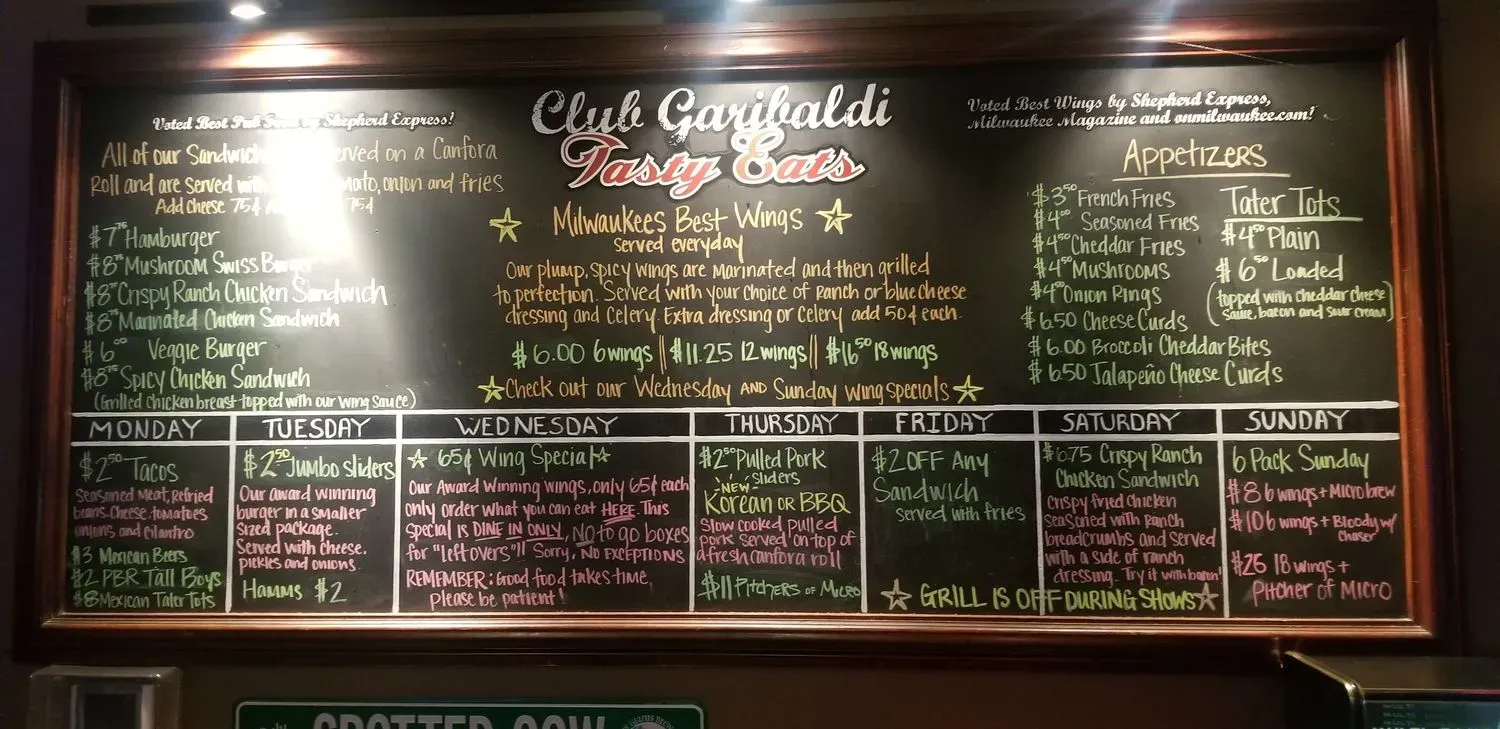 Voted Best Pub Food by Shepherd Express!
All of our Sandwich served on a Canfora
Roll and are served with tomato, onion and fries
Add cheese 75¢ 75¢
$7.75 Hamburger
$8.75 Mushroom Swiss Burger
$8.75 Crispy Ranch Chicken Sandwich
$8.75 Marinated Chicken Sandwich
$6.00 Veggie Burger
$8.75 Spicy Chicken Sandwich
(Grilled chicken breast topped with our wing sauce)
Club Garibaldi
Tasty Eats
Milwaukees Best Wings
served everyday
Our plump, spicy wings are marinated and then grilled
to perfection. Served with your choice of ranch or blue cheese
dressing and celery. Extra dressing or celery add 50¢ each.
$6.00 6 wings || $11.25 12 wings || $16.50 18 wings
Check out our Wednesday AND Sunday wing specials
Voted Best Wings by Shepherd Express,
Milwaukee Magazine and onmilwaukee.com!
Appetizers
$3.50 French Fries
$4.00 Seasoned Fries
$4.50 Cheddar Fries
$4.50 Mushrooms
$4.50 Onion Rings
$6.50 Cheese Curds
$6.00 Broccoli Cheddar Bites
$6.50 Jalapeño Cheese Curds
Tater Tots
$4.50 Plain
$6.50 Loaded
(topped with cheddar cheese
sauce, bacon and sour cream)
MONDAY
$2.50 Tacos
Seasoned Meat, Refried
beans, cheese, tomatoes
onions and cilantro
$3 Mexican Beers
$2 PBR Tall Boys
$8 Mexican Tater Tots
TUESDAY
$2.50 Jumbo Sliders
Our award winning
burger in a smaller
sized package.
Served with cheese,
pickles and onions.
Hamms $2
WEDNESDAY
65¢ Wing Special
Our Award winning wings, only 65¢ each
only order what you can eat HERE. This
special is DINE IN ONLY, NO to go boxes
for "leftovers"!! Sorry, NO EXCEPTIONS
REMEMBER: Good food takes time,
please be patient!
THURSDAY
$2.50 Pulled Pork
Sliders
-NEW-
Korean OR BBQ
Slow cooked pulled
pork served on top of
a fresh canfora roll
$11 Pitchers of Micro
FRIDAY
$2 OFF Any
Sandwich
served with fries
GRILL IS OFF DURING SHOWS
SATURDAY
$6.75 Crispy Ranch
Chicken Sandwich
Crispy fried chicken
seasoned with ranch
breadcrumbs and served
with a side of ranch
dressing. Try it with bacon!
SUNDAY
6 Pack Sunday
$8 6 wings + Micro brew
$10 6 wings + Bloody w/
chaser
$26 18 wings +
Pitcher of Micro
SPOTTED COW